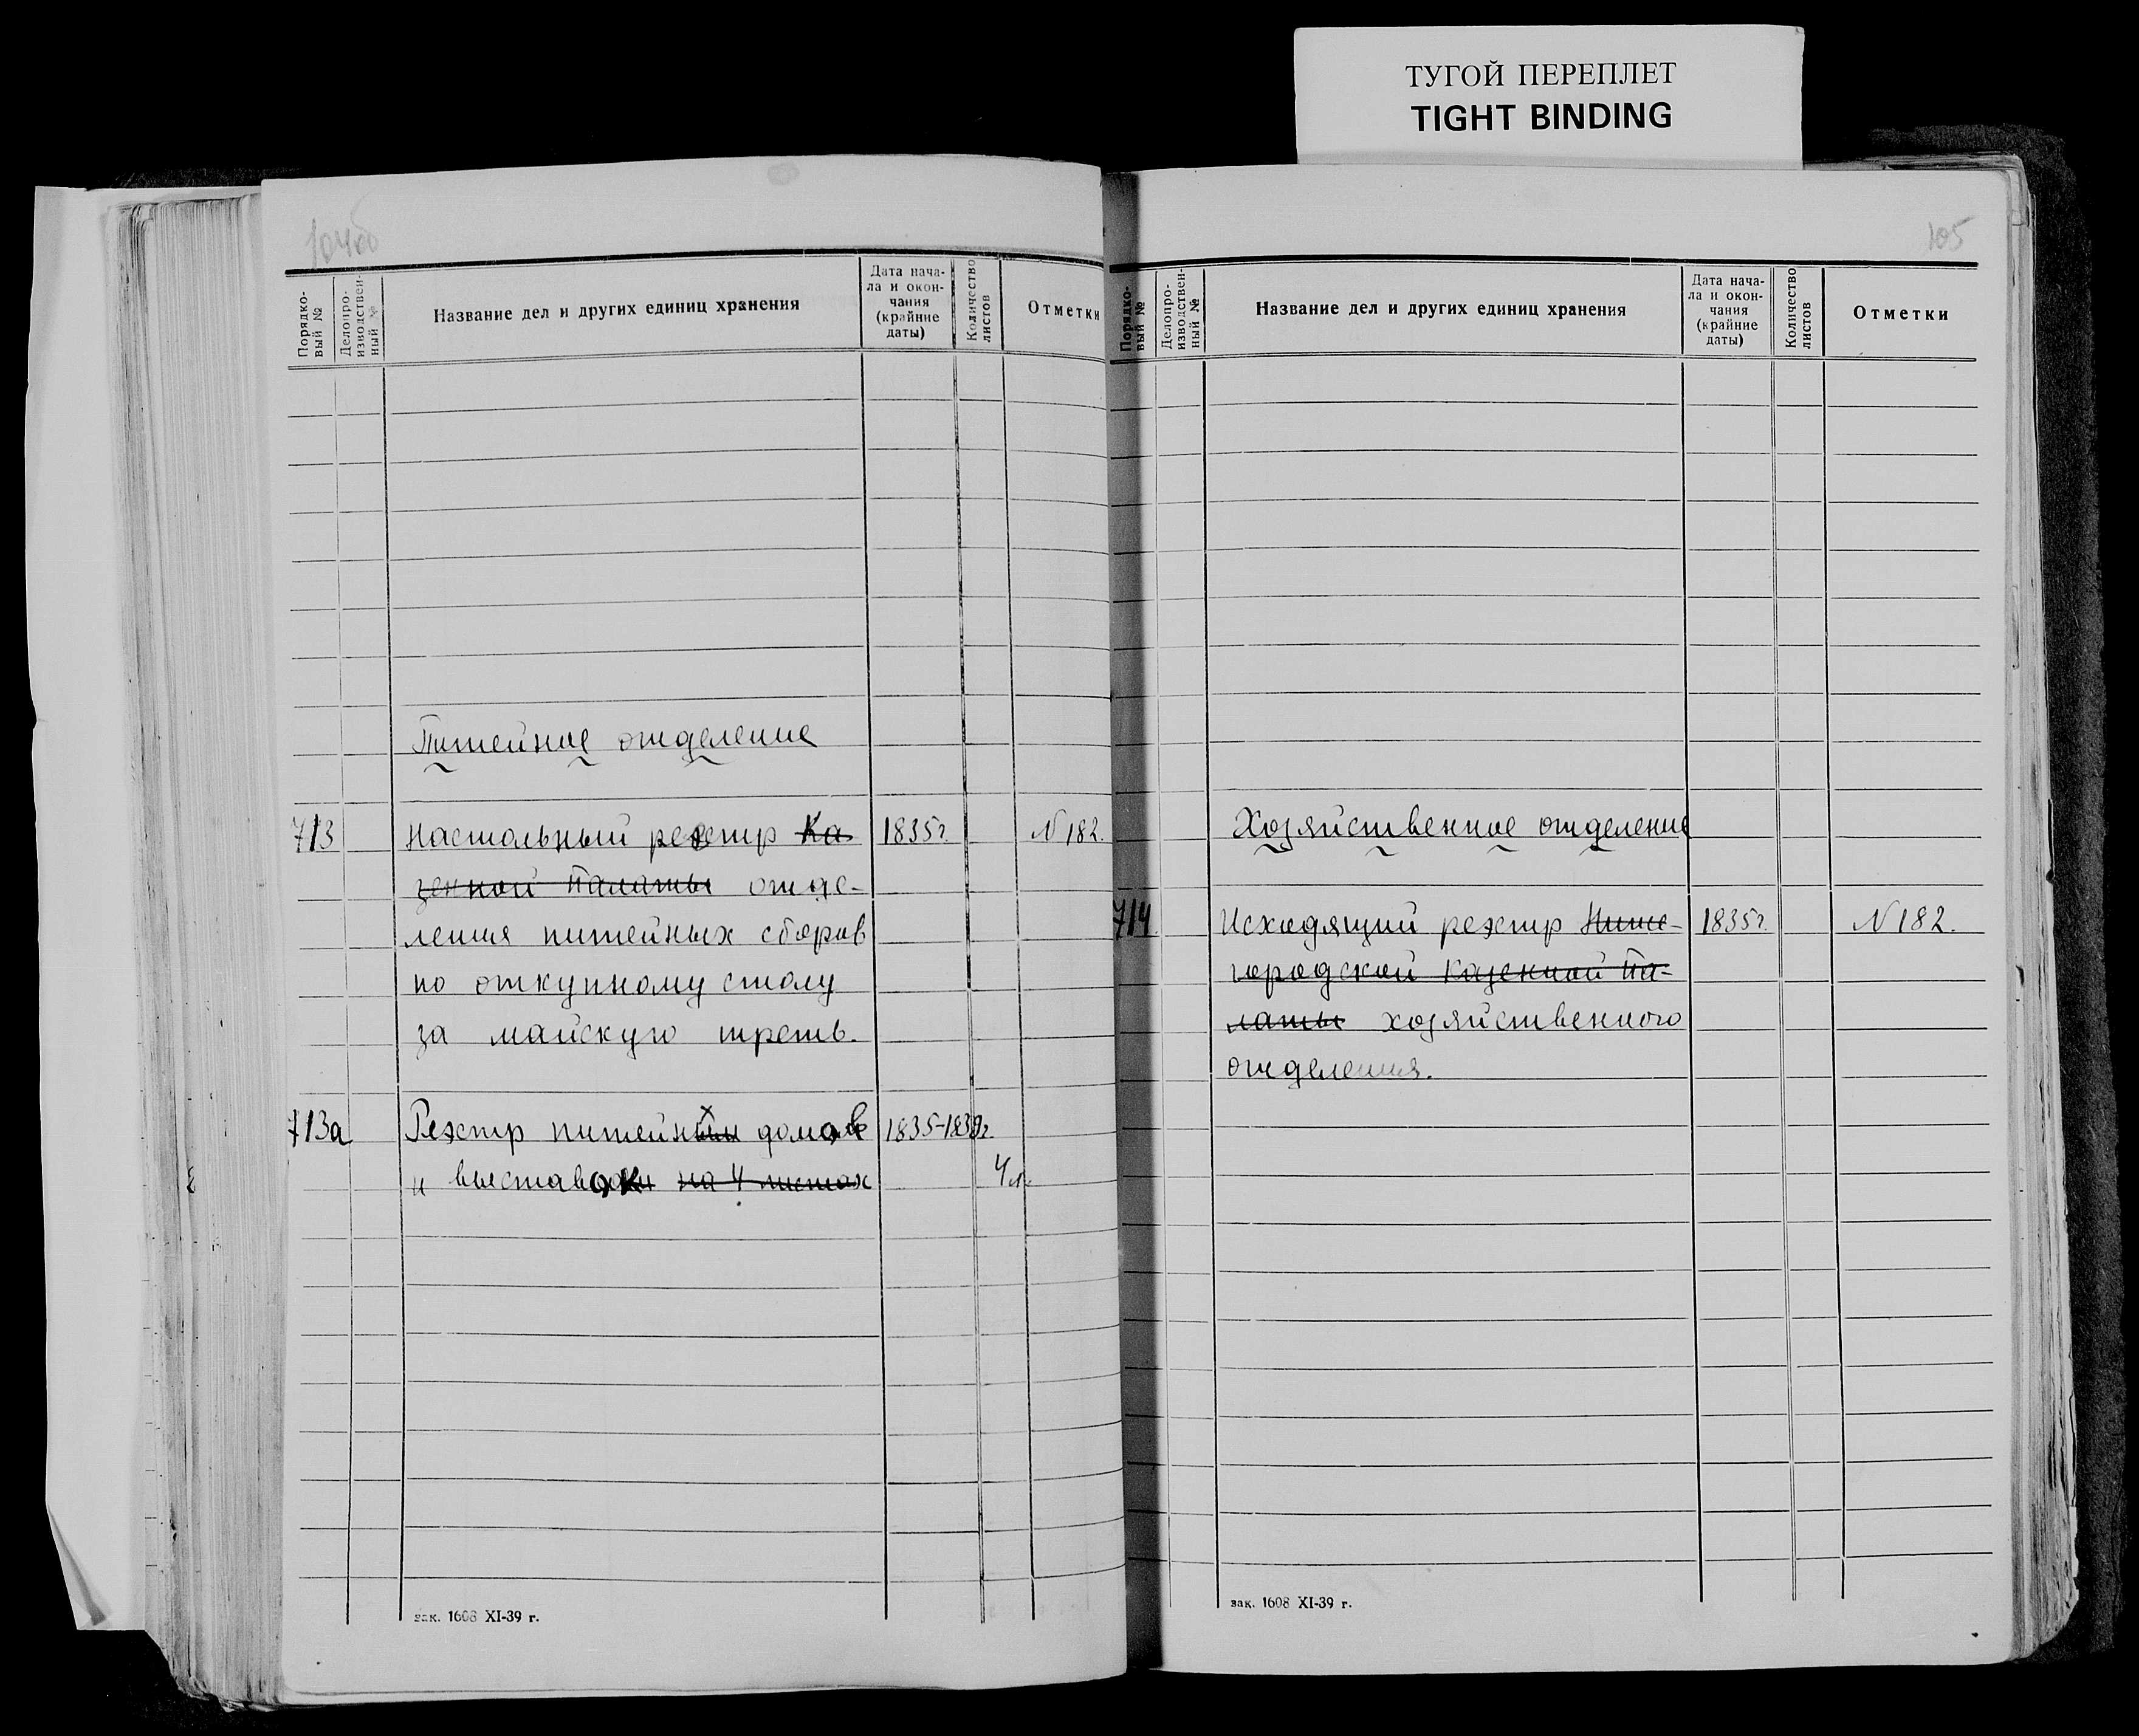 ТУГОЙ ПЕРЕПЛЕТ
TIGHT BINDING
104об
Порядко-
вый №
Делопро-
изводствен-
ный №
Название дел и других единиц хранения
Дата нача-
ла и окон-
чания
(крайние
даты)
Количество
листов
Отметки
Питейное отделение
713 Настольный реестр Ка 1835г. N 182.
зенной Палаты отде-
ления питейных сборов
по откупному столу
за майскую треть.
713а Реестр питейных домов 1835-1839г.
и выставок на 4 листах 4 л.
зак. 1608 XI-39 г.
105
Порядко-
вый №
Делопро-
изводствен-
ный №
Название дел и других единиц хранения
Дата нача-
ла и окон-
чания
(крайние
даты)
Количество
листов
Отметки
Хозяйственное отделение
714 Исходящий реэстр Ниже- 1835г. N 182.
городской казенной Па-
латы хозяйственного
отделения.
зак. 1608 XI-39 г.